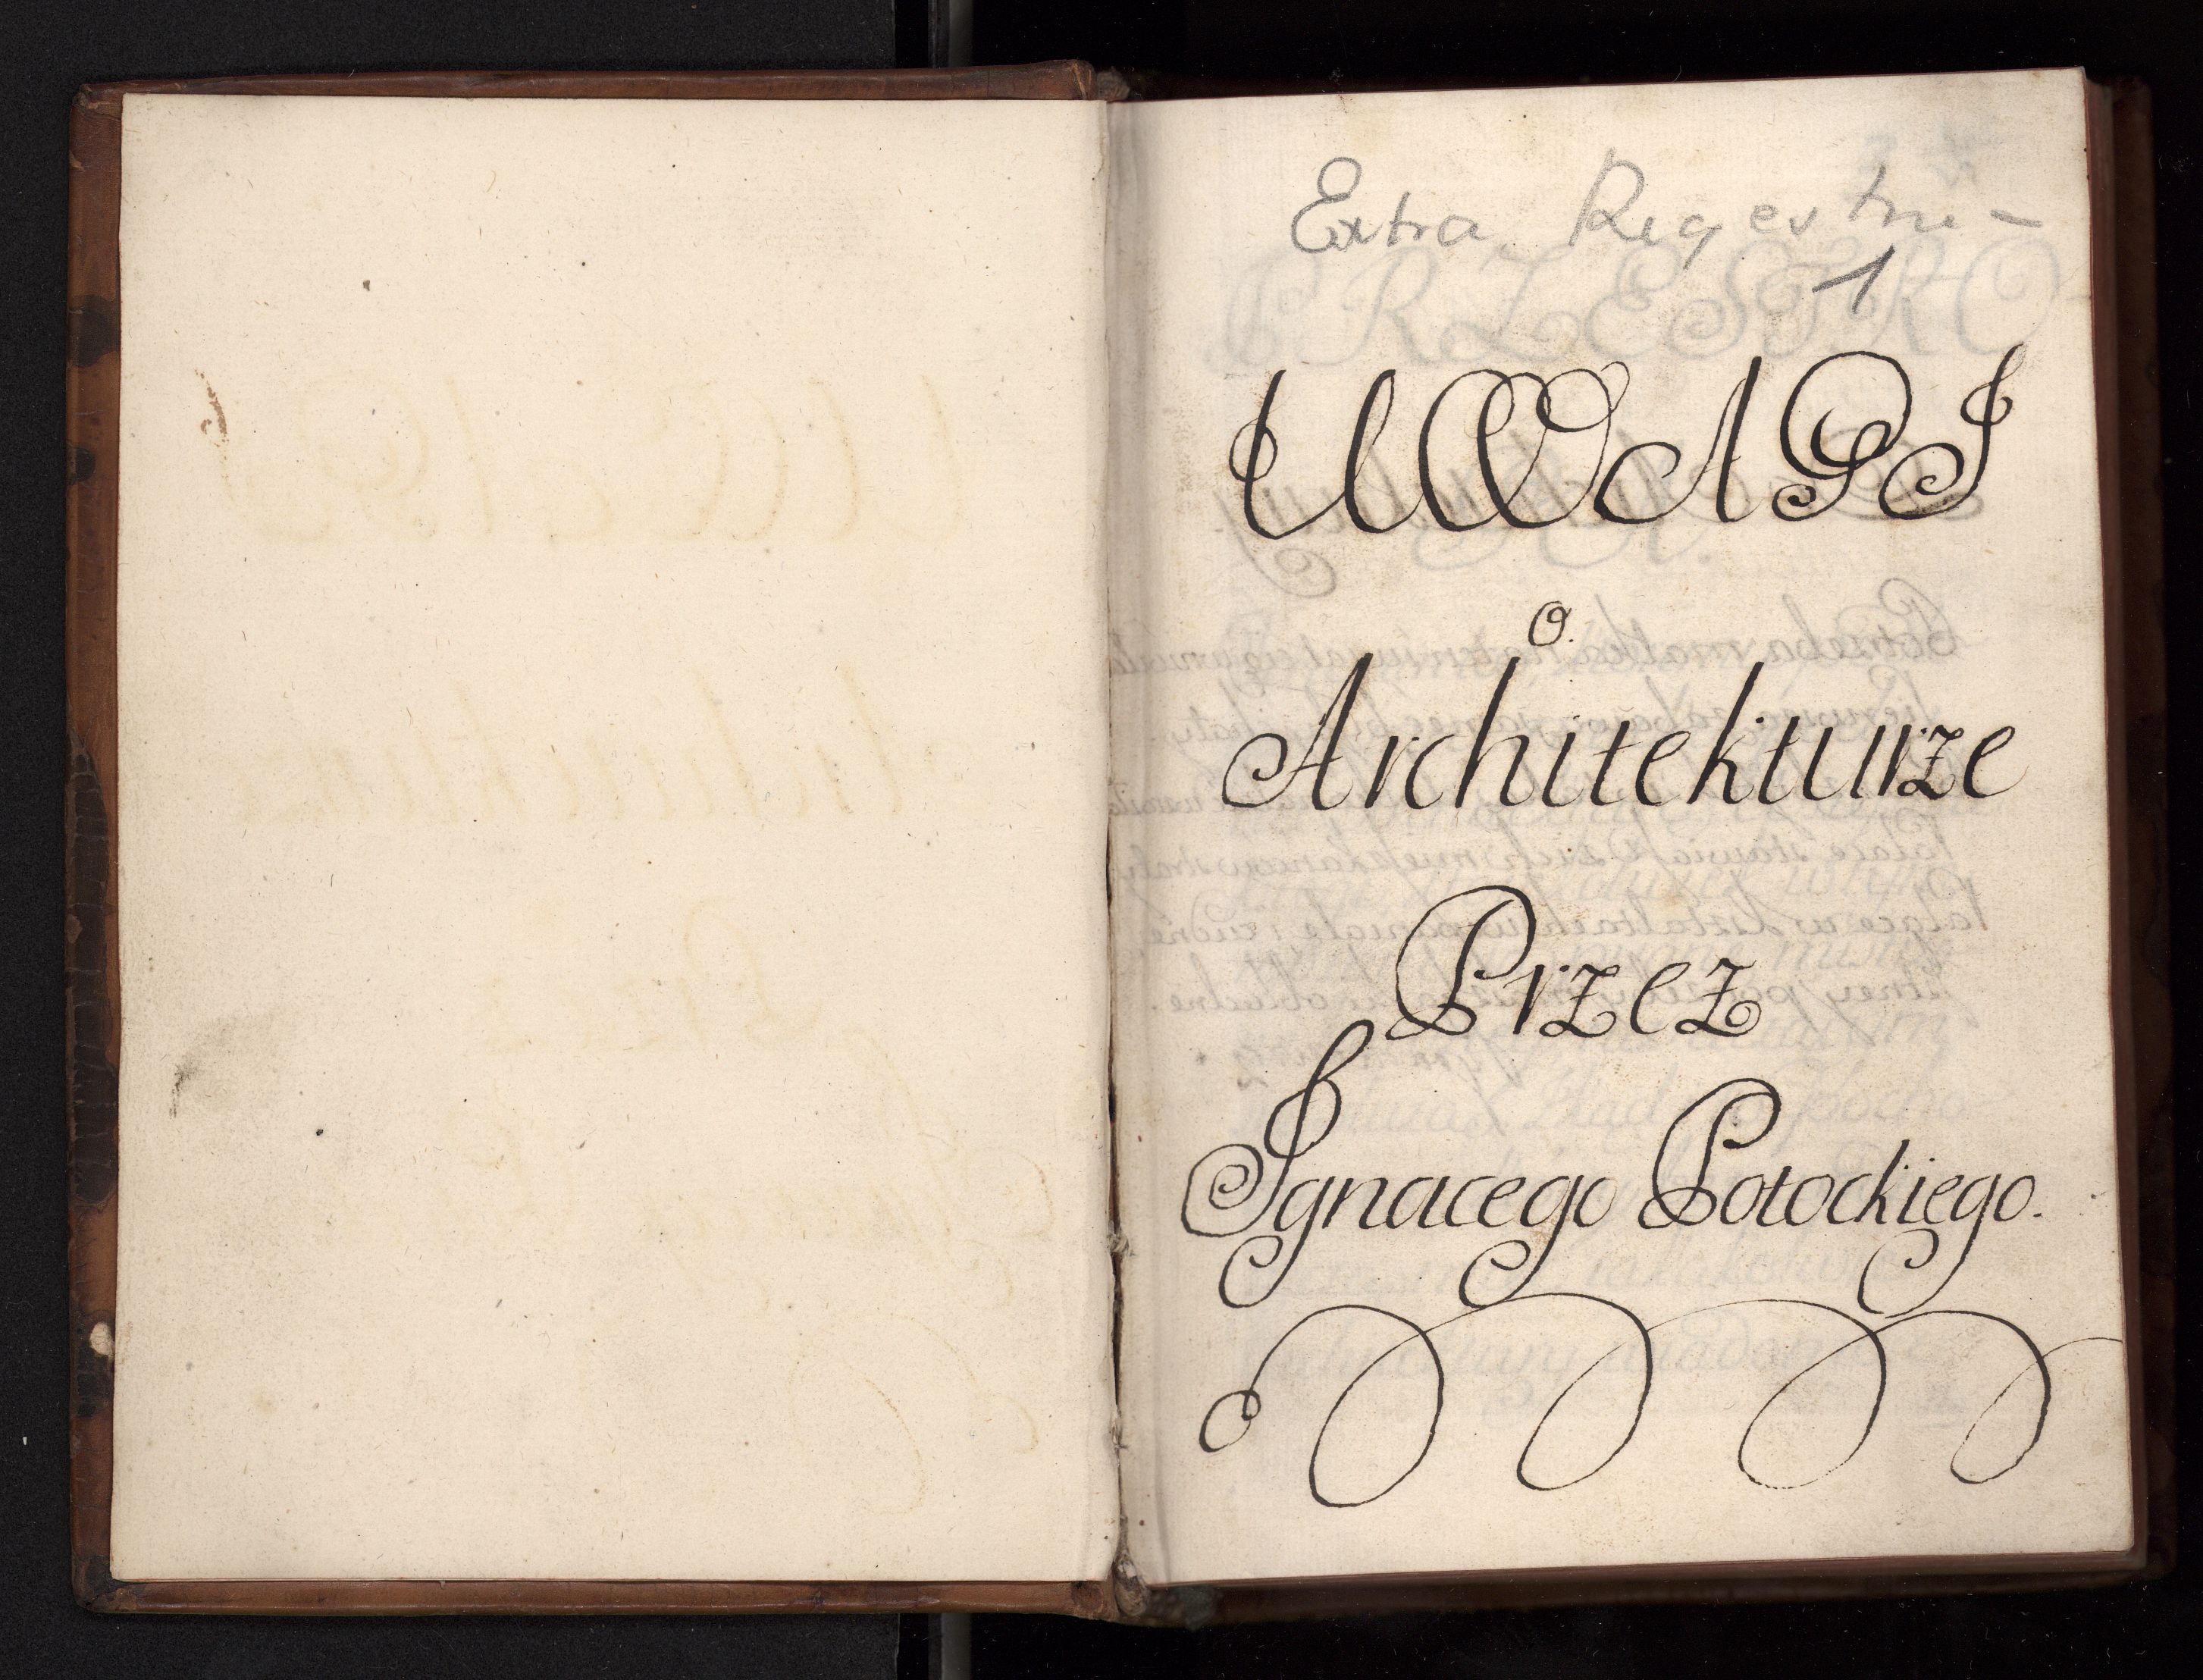 Extra Regestru-
1
UWAGI
o.
Architekturze
Przez
Ignacego Potockiego.